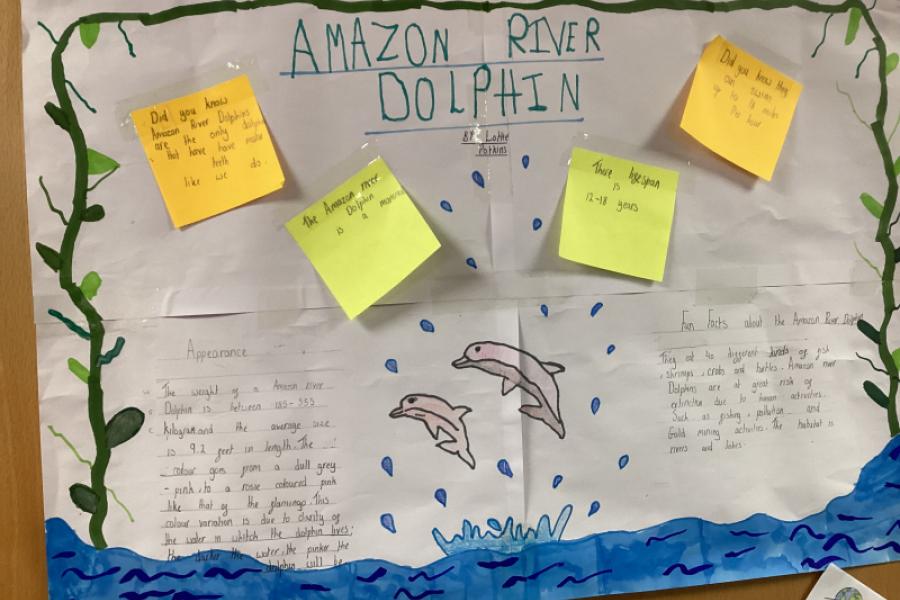 AMAZON RIVER
DOLPHIN
BY Lottie
Did you know
Amazon River Dolphins
are the only dolphin
that have have molar
teeth
like we do.
The Amazon river
Dolphin
is a mammal
There lifespan
is
12-18 years
Did you know they
can swim
up to 18 miles
Per hour
Appearance
The weight of a Amazon river
Dolphin is between 185-355
kilogram and the average size
is 9.2 feet in length. The
colour goes from a dull grey
- pink, to a rosie coloured pink
like that of the flamingo. This
colour variation is due to clarity of
the water in whitch the dolphin lives;
the darker the water, the pinker the
dolphin will be
Fun Facts about the Amazon River Dolphin
They eat 40 different kinds of fish
, shrimps, crabs and turtles. Amazon river
Dolphins are at great risk of
extinction due to human activities.
Such as fishing, pollution and
Gold mining activities. The habitat is
rivers and lakes.